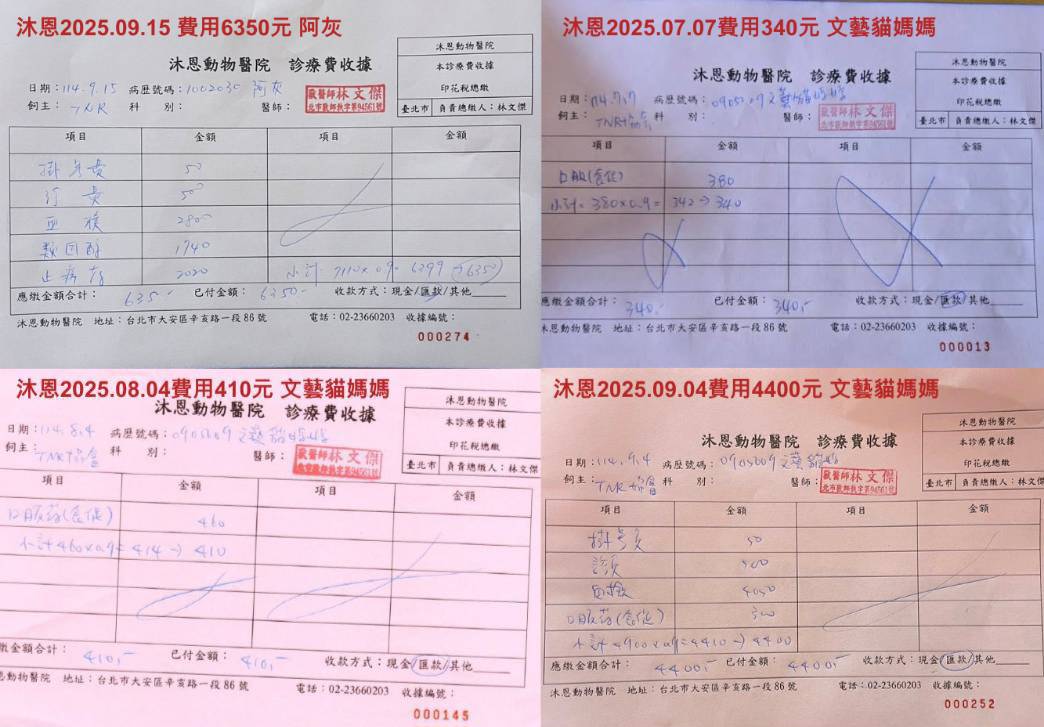 沐恩2025.09.15 費用6350元 阿灰
沐恩動物醫院
本診療費收據
印花稅總繳
臺北市 負責總繳人：林文傑
沐恩動物醫院 診療費收據
日期：114.9.15 病歷號碼：1002030 阿灰
飼主：TNR 科 別： 醫師：
獸醫師林文傑
北市獸師執字第94561號
項目 金額 項目 金額
掛號費 50
診 費 500
血檢 2800
類固醇 1740
止痛 2020 小計 7110×0.9= 6399 → 6350
應繳金額合計： 6350 已付金額： 6350 收款方式：現金/匯款/其他
沐恩動物醫院 地址：台北市大安區辛亥路一段86號 電話：02-23660203 收據編號：
000274
沐恩2025.07.07費用340元 文藝貓媽媽
沐恩動物醫院
本診療費收據
印花稅總繳
臺北市 負責總繳人：林文傑
沐恩動物醫院 診療費收據
日期：114.7.7 病歷號碼：0905009 文藝貓媽媽
飼主：TNR協會 科 別： 醫師：
獸醫師林文傑
北市獸師執字第94561號
項目 金額 項目 金額
口服(食促) 380
小計= 380×0.9= 342→340
應繳金額合計： 340.- 已付金額： 340.- 收款方式：現金/匯款/其他
沐恩動物醫院 地址：台北市大安區辛亥路一段86號 電話：02-23660203 收據編號：
000013
沐恩2025.08.04費用410元 文藝貓媽媽
沐恩動物醫院
本診療費收據
印花稅總繳
臺北市 負責總繳人：林文傑
沐恩動物醫院 診療費收據
日期：114.8.4 病歷號碼：0905009 文藝貓媽媽
飼主：TNR協會 科 別： 醫師：
獸醫師林文傑
北市獸師執字第94561號
項目 金額 項目 金額
口服药(食促) 460
小計460×0.9= 414→410
繳金額合計： 410.- 已付金額： 410.- 收款方式：現金/匯款/其他
恩動物醫院 地址：台北市大安區辛亥路一段86號 電話：02-23660203 收據編號：
000145
沐恩2025.09.04費用4400元 文藝貓媽媽
沐恩動物醫院
本診療費收據
印花稅總繳
臺北市 負責總繳人：林文傑
沐恩動物醫院 診療費收據
日期：114.9.4 病歷號碼：0905009 文藝貓媽媽
飼主：TNR協會 科 別： 醫師：
獸醫師林文傑
北市獸師執字第94561號
項目 金額 項目 金額
掛號費 50
診費 500
血檢 4050
口服药(食促) 300
小計4900×0.9=4410→4400
應繳金額合計： 4400.- 已付金額： 4400.- 收款方式：現金/匯款/其他
沐恩動物醫院 地址：台北市大安區辛亥路一段86號 電話：02-23660203 收據編號：
000252